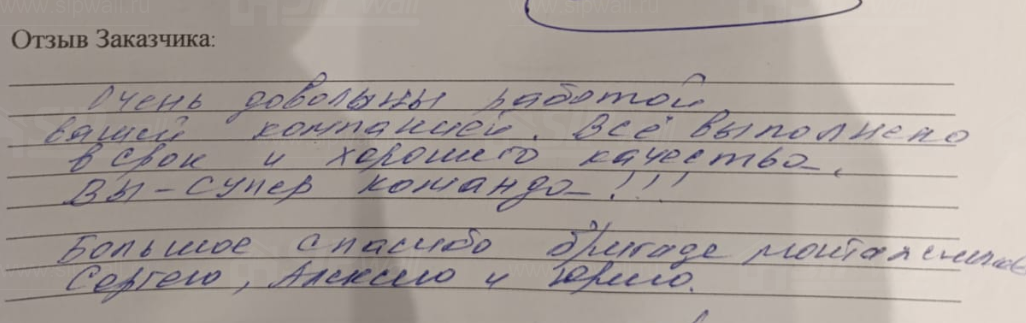 www.sipwall www.sipwall.
Отзыв Заказчика:
Очень довольны работой
вашей компанией. Всё выполнено
в срок и хорошего качества,
Вы - супер команда!!!
Большое спасибо бригаде монтажников
Сергею, Алексею и Юрию.